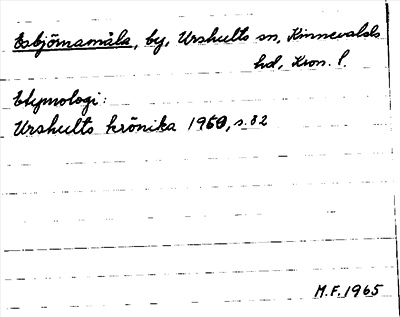 Esbjörnamåla, by, Urshults sn, Kinnevalds
hd, Kron. l.
Etymologi:
Urshults krönika 1960, s. 82
M.F. 1965